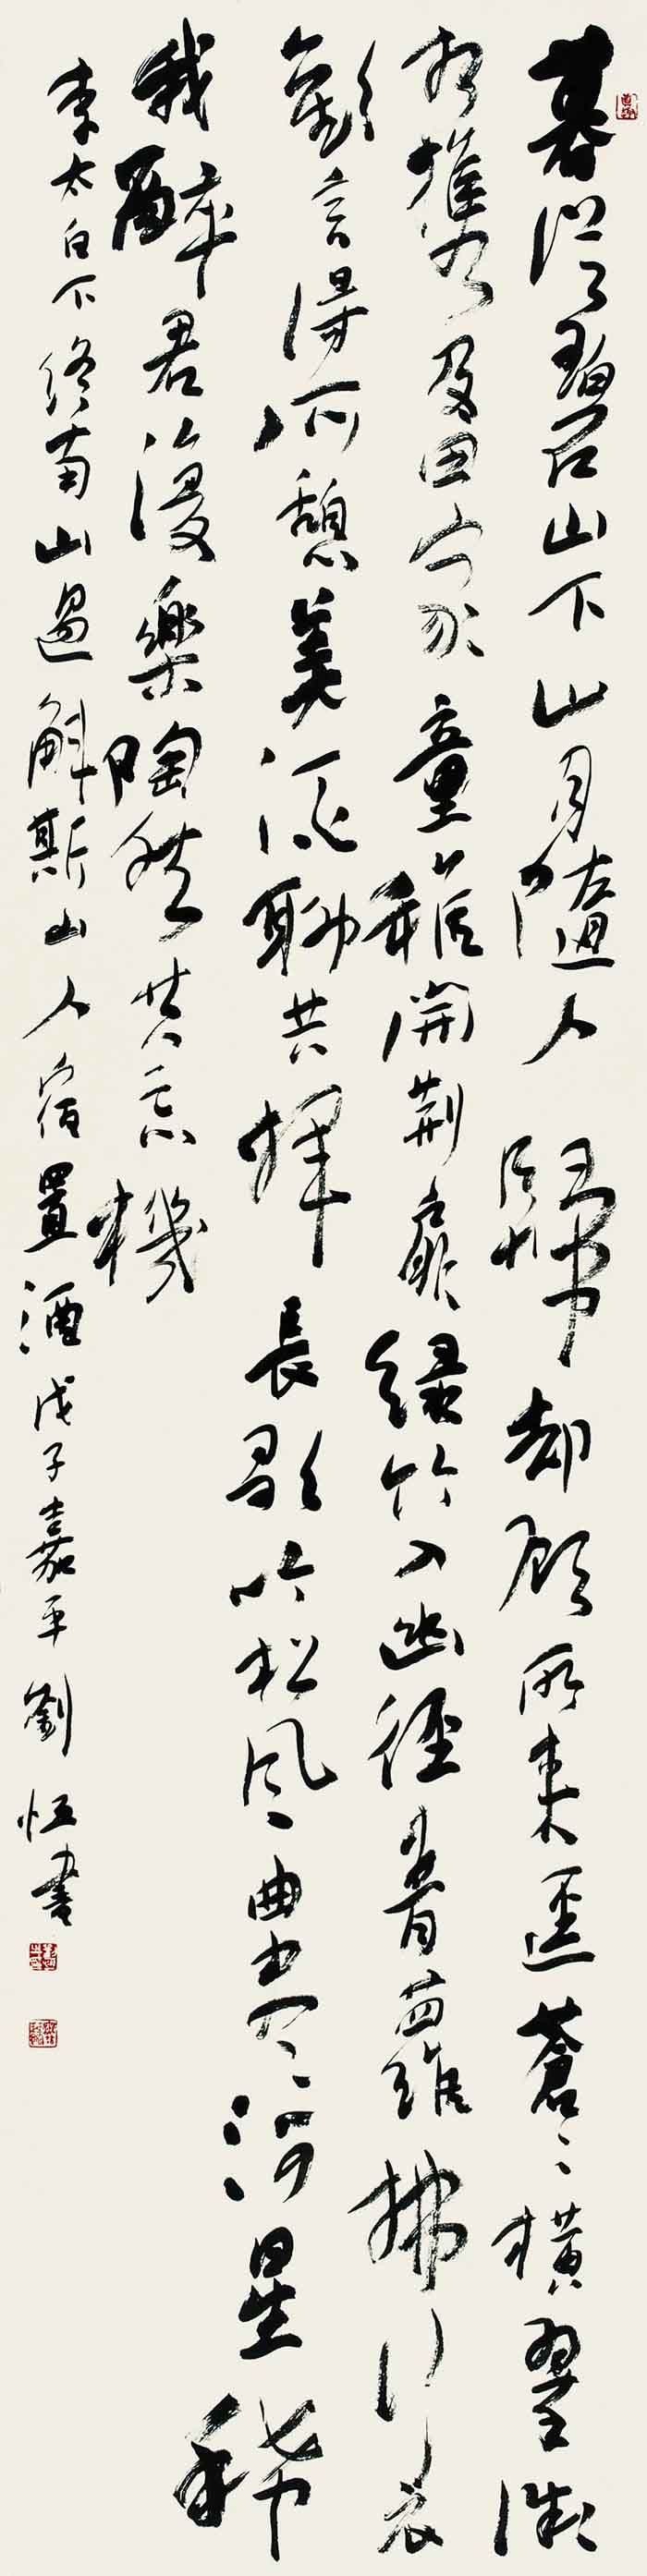 暮從碧山下山月隨人歸却顧所來逕蒼〻橫翠微
相攜及田家童稚開荊扉綠竹入幽徑青蘿拂行衣
歡言得所憩美酒聊共揮長歌吟松風曲盡河星稀
我醉君復樂陶然共忘機
李太白下終南山過斛斯山人宿置酒戊子嘉平劉恒書